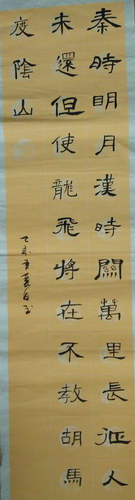 秦時明月漢時關萬里長征人
未還但使龍飛將在不教胡馬
度陰山